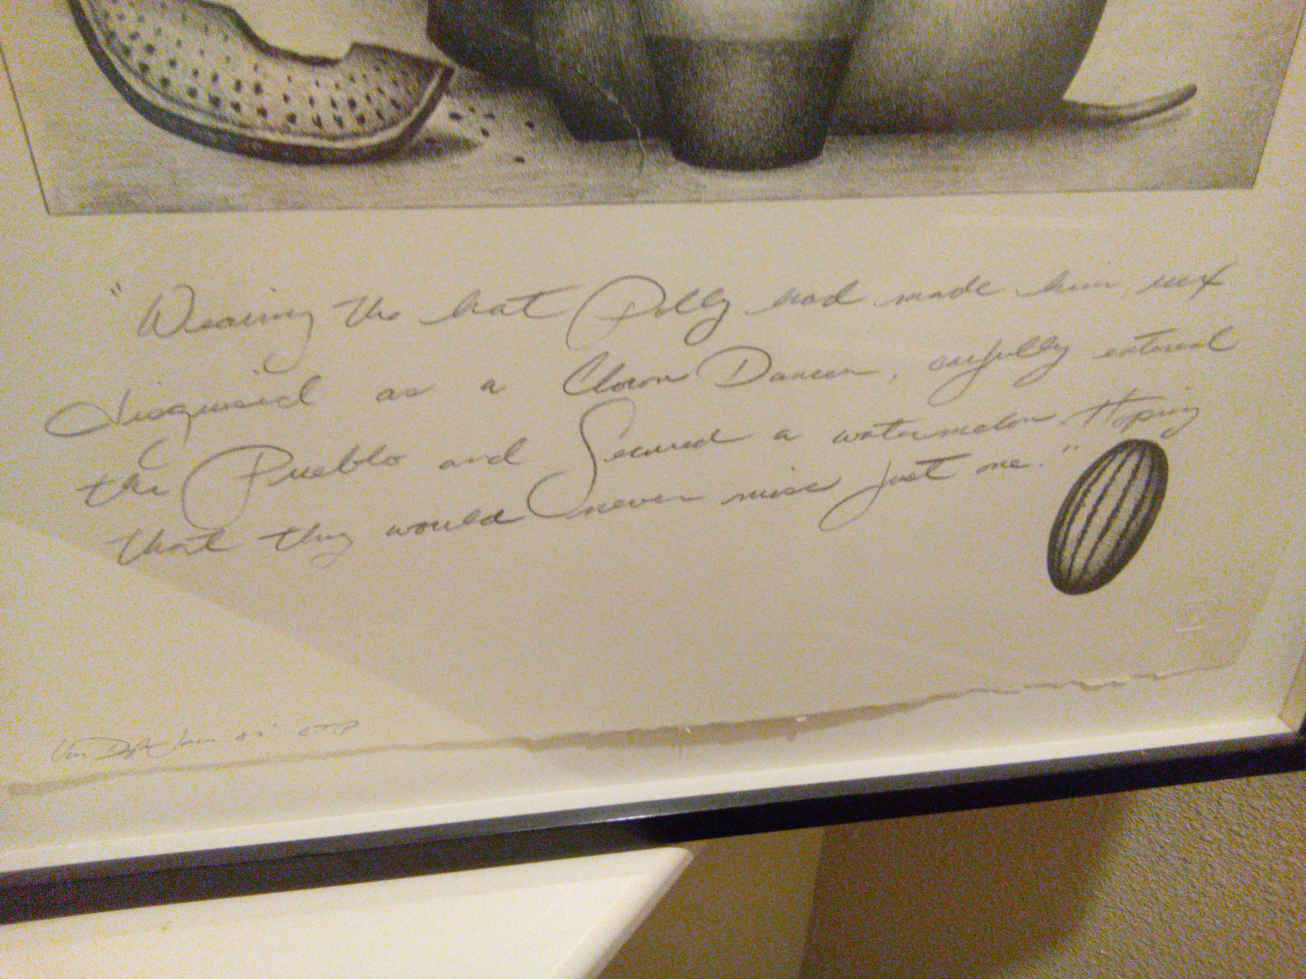 "Wearing the hat Polly had made him, rex
disguised as a Clown Dancer, carfully entered
the Pueblo and Secured a watermelon. Hoping
that they would never miss just one."